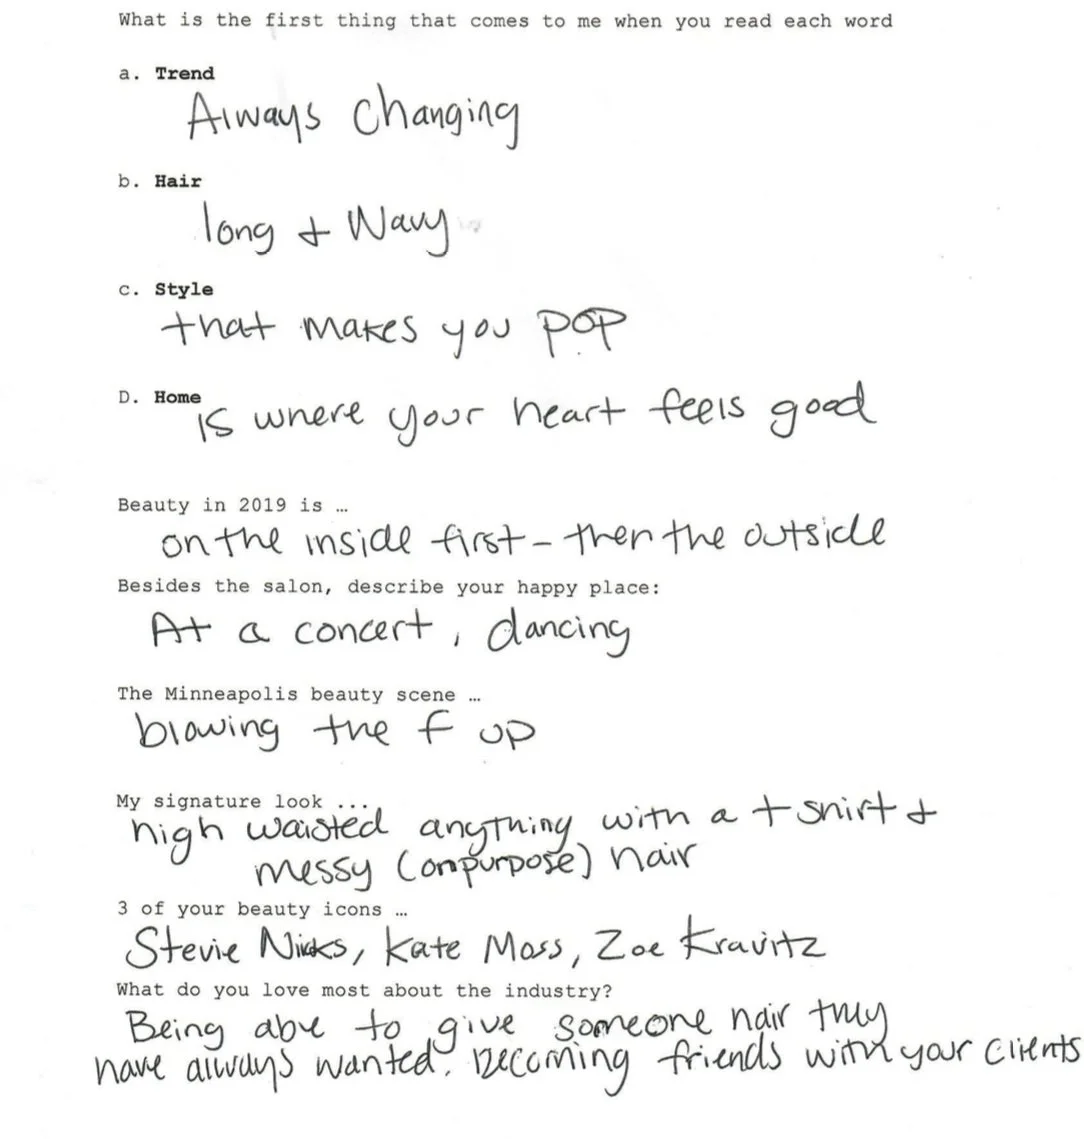 What is the first thing that comes to me when you read each word
a. Trend
Always changing
b. Hair
long + Wavy
c. Style
that makes you POP
D. Home
is where your heart feels good
Beauty in 2019 is …
on the inside first - then the outside
Besides the salon, describe your happy place:
At a concert, dancing
The Minneapolis beauty scene …
blowing the f up
My signature look ...
high waisted anything with a t shirt +
messy (on purpose) hair
3 of your beauty icons …
Stevie Nicks, Kate Moss, Zoe Kravitz
What do you love most about the industry?
Being able to give someone hair they
have always wanted. Becoming friends with your clients